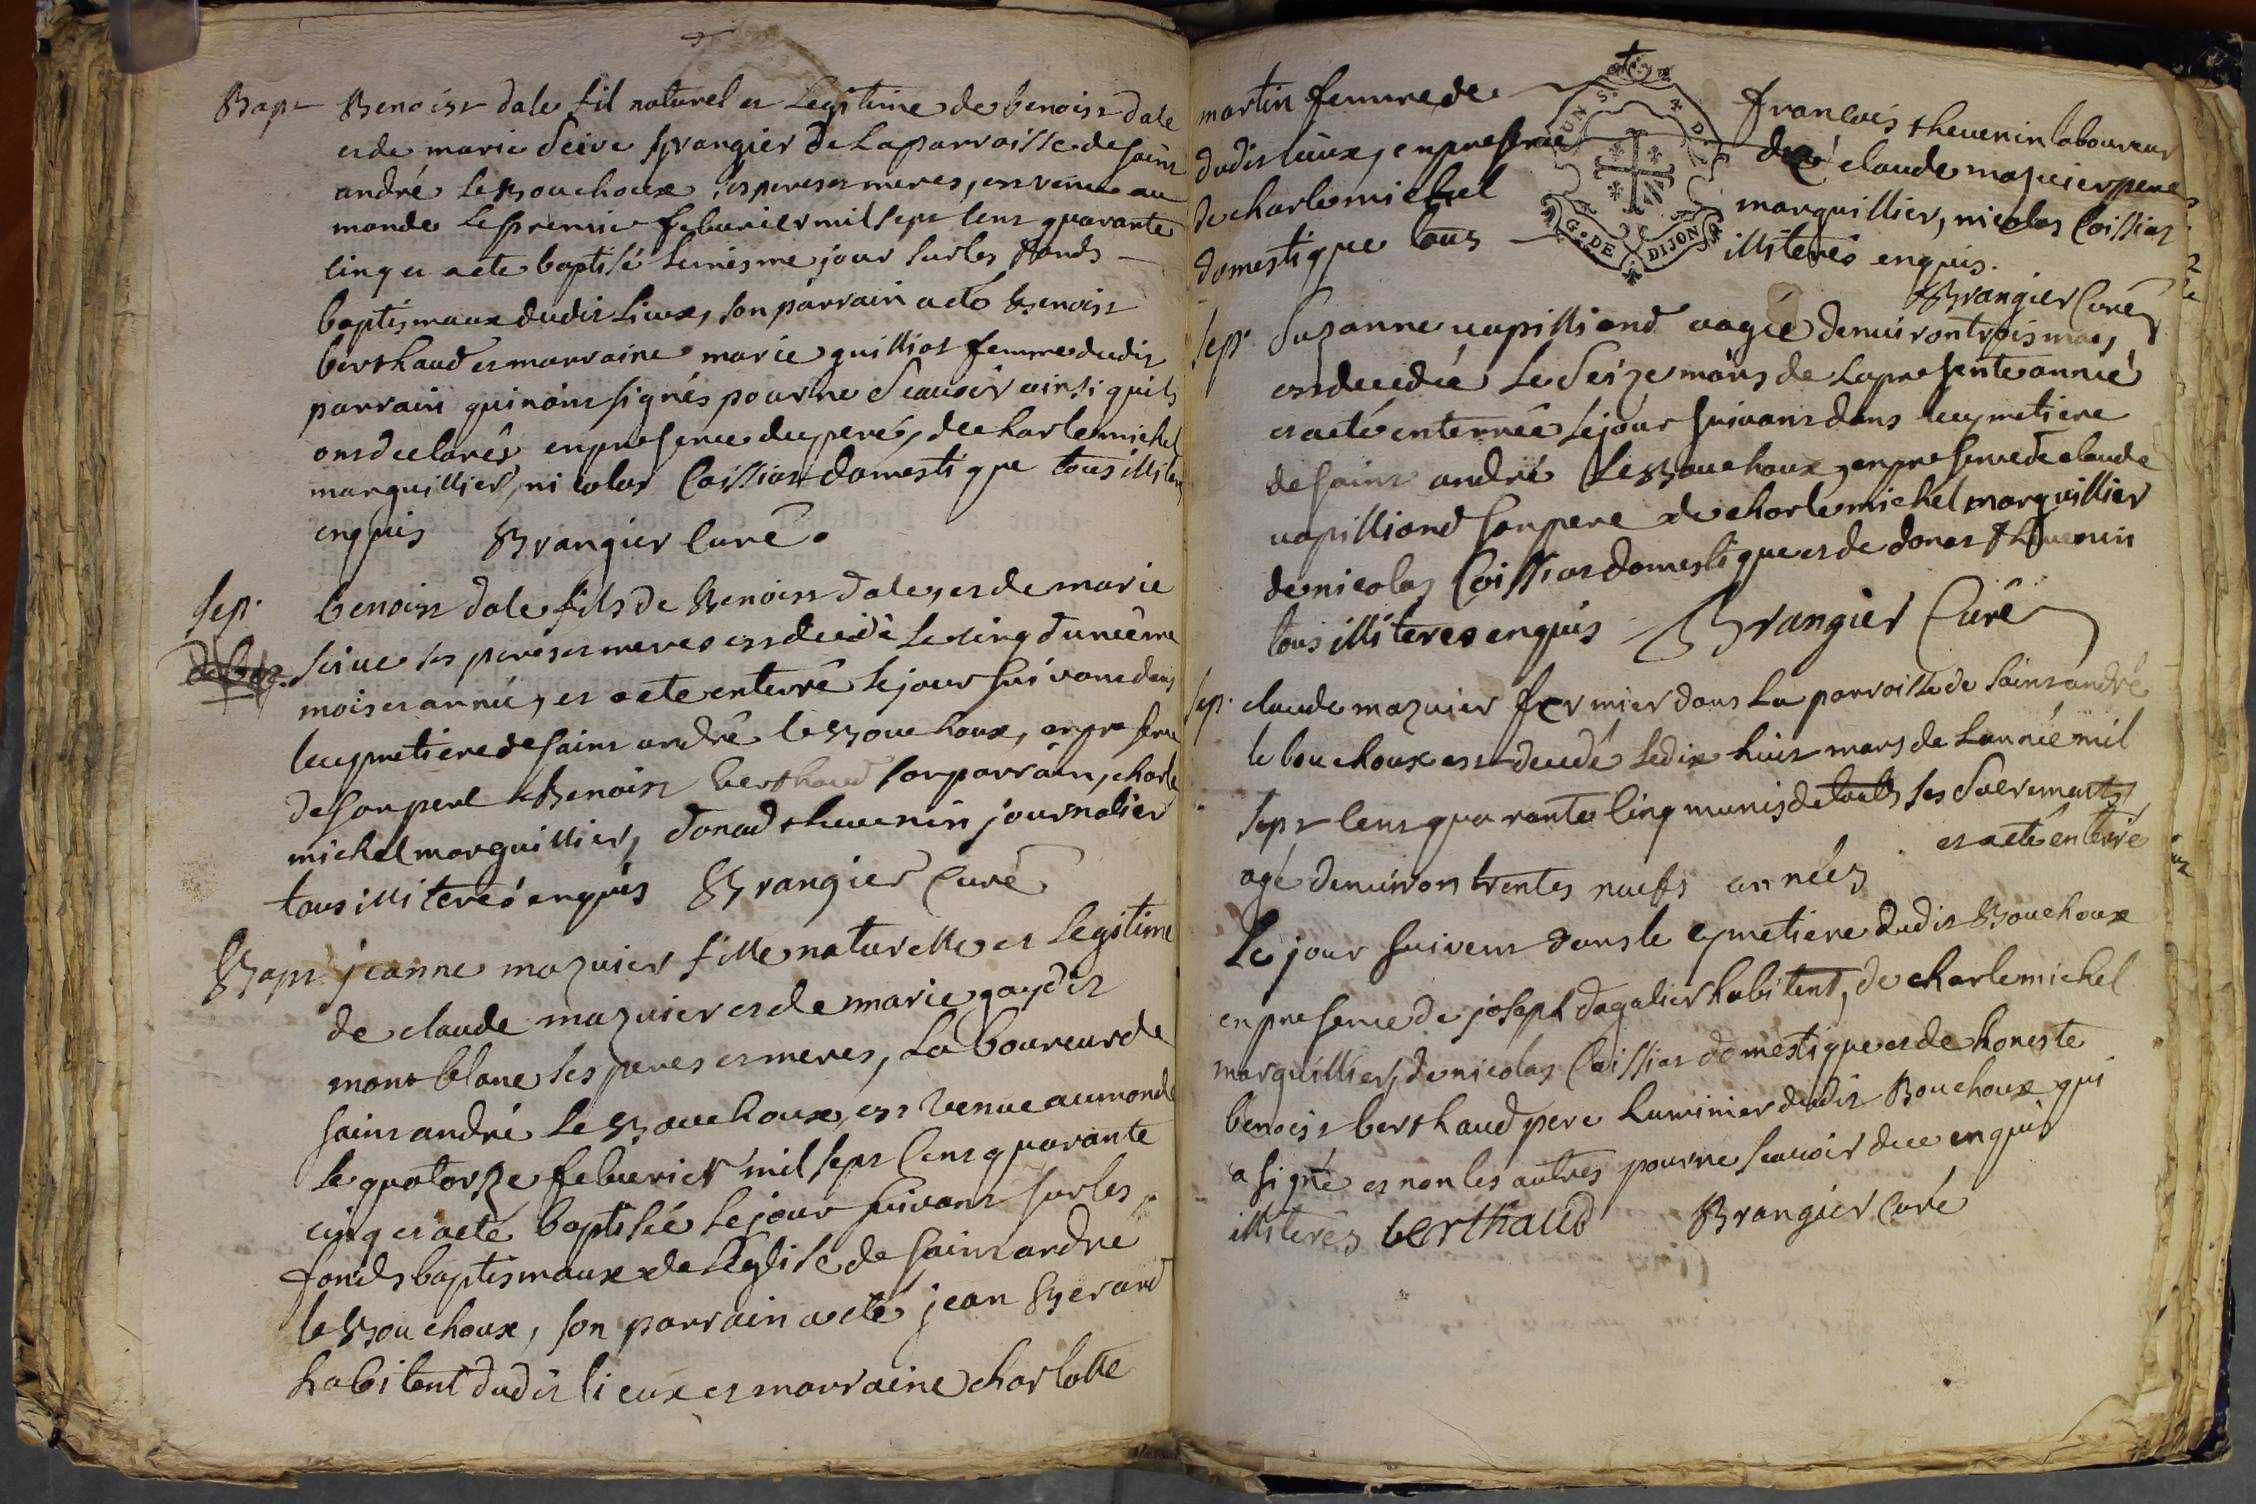 Bapt Benoist dale fil naturel et Legitime de benoist dale
et de marie Seive grangier de Laparroisse de saint
andré Le Bouchoux ses peres et meres, est venu au
monde Le premier febvrier mil sept cent quarante
cinq et a eté baptisé Le mesme jour sur les fonds
baptismaux dudit Lieux, son parrain a eté Benoist
berthaud et marraine marie guilliot femme dudit
parrain qui n'ont signés pour ne Scavoir ainsi quils
ont declarés en presence du pere, de charle michel
marguillier, nicolas Coissiat domestique tous illiteres
enquis Brangier Curé.
Sep. benoist dale fils de Benoist dale, et de marie
seive ses peres et meres est decedé Le cinq du même
mois et année, et a eté enterré Le jour suivant dans
le cymetiere de saint andré le Bouchoux, en presence
de son pere de Benoist berthaud son parrain, charle
michel marguillier, donad thevenin journalier
tous illiterés enquis Brangier Curé
Bapt jeanne mazuier fille naturelle et Legitime
de claude mazuier et de marie gaydit
mont blanc ses peres et meres, Laboureur de
saint andré Le Bouchoux, est venue au monde
le quatorze febvrier mil sept Cent quarante
cinq et a eté baptisée Le jour suivant sur les
fonds baptismaux de L'eglise de saint andre
le Bouchoux, son parrain a eté jean Berand
habitent dudit lieux et marraine charlotte
martin femme de françois thevenin laboureur
dudit lieux, en presence de claude mazuier pere
de charle michel marguillier, nicolas Coissiat
domestique tous illiterés enquis.
UN S. 4 D.
G. DE DIJON
Brangier Curé
Sept. Suzanne vapilliond aagée d'environ trois mois,
est decedée Le Seize mars de La presente année
et a eté enterrée Le jour suivant dans le cymetiere
de saint andré Le Bouchoux, en presence de claude
vapilliond son pere de charle michel marguillier
de nicolas Coissiat domestique et de donat thevenin
tous illiteres enquis Brangier Curé
Sep. claude mazuier fermier dans La parroisse de saint andré
le bouchoux est decedé Le dix huit mars de L'année mil
sept cent quarante cinq munis de touts ses Sacrements
agé d'environ trentes neufs années et a eté enterré
Le jour suivent dans le cymetiere dudit Bouchoux
en presence de joseph dagalier habitent, de charle michel
marguillier, de nicolas Coissiat domestique et de honeste
benoist berthaud pere Luminier dudit Bouchoux qui
a signé et non les autres pour ne scavoir de ce enquis
illiterés berthaud Brangier Curé